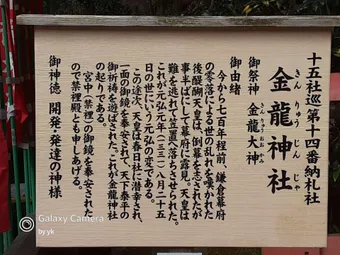 十五社巡第十四番納札社
金龍神社
きんりゅうじんじゃ
御祭神 金龍大神
御由緒
今から七百年程前、鎌倉幕府
の零落による世の乱れを嘆かれた
後醍醐天皇は、倒幕を志されたが
事半ばにして幕府に露見。天皇は
難を逃れて笠置へ落ちさせられた。
これが元弘元年(一三三一)八月二十五
日の世にいう元弘の変である。
この途次、天皇は春日社に潜幸され、
一面の御鏡を奉安されて、天下泰平の
御祈祷を遊ばされた。これが金龍神社
の起りである。
宮中(禁裡)の御鏡を奉安された
ので禁裡殿とも申しあげる。
御神徳 開発・発達の神様
Galaxy Camera
by.yk